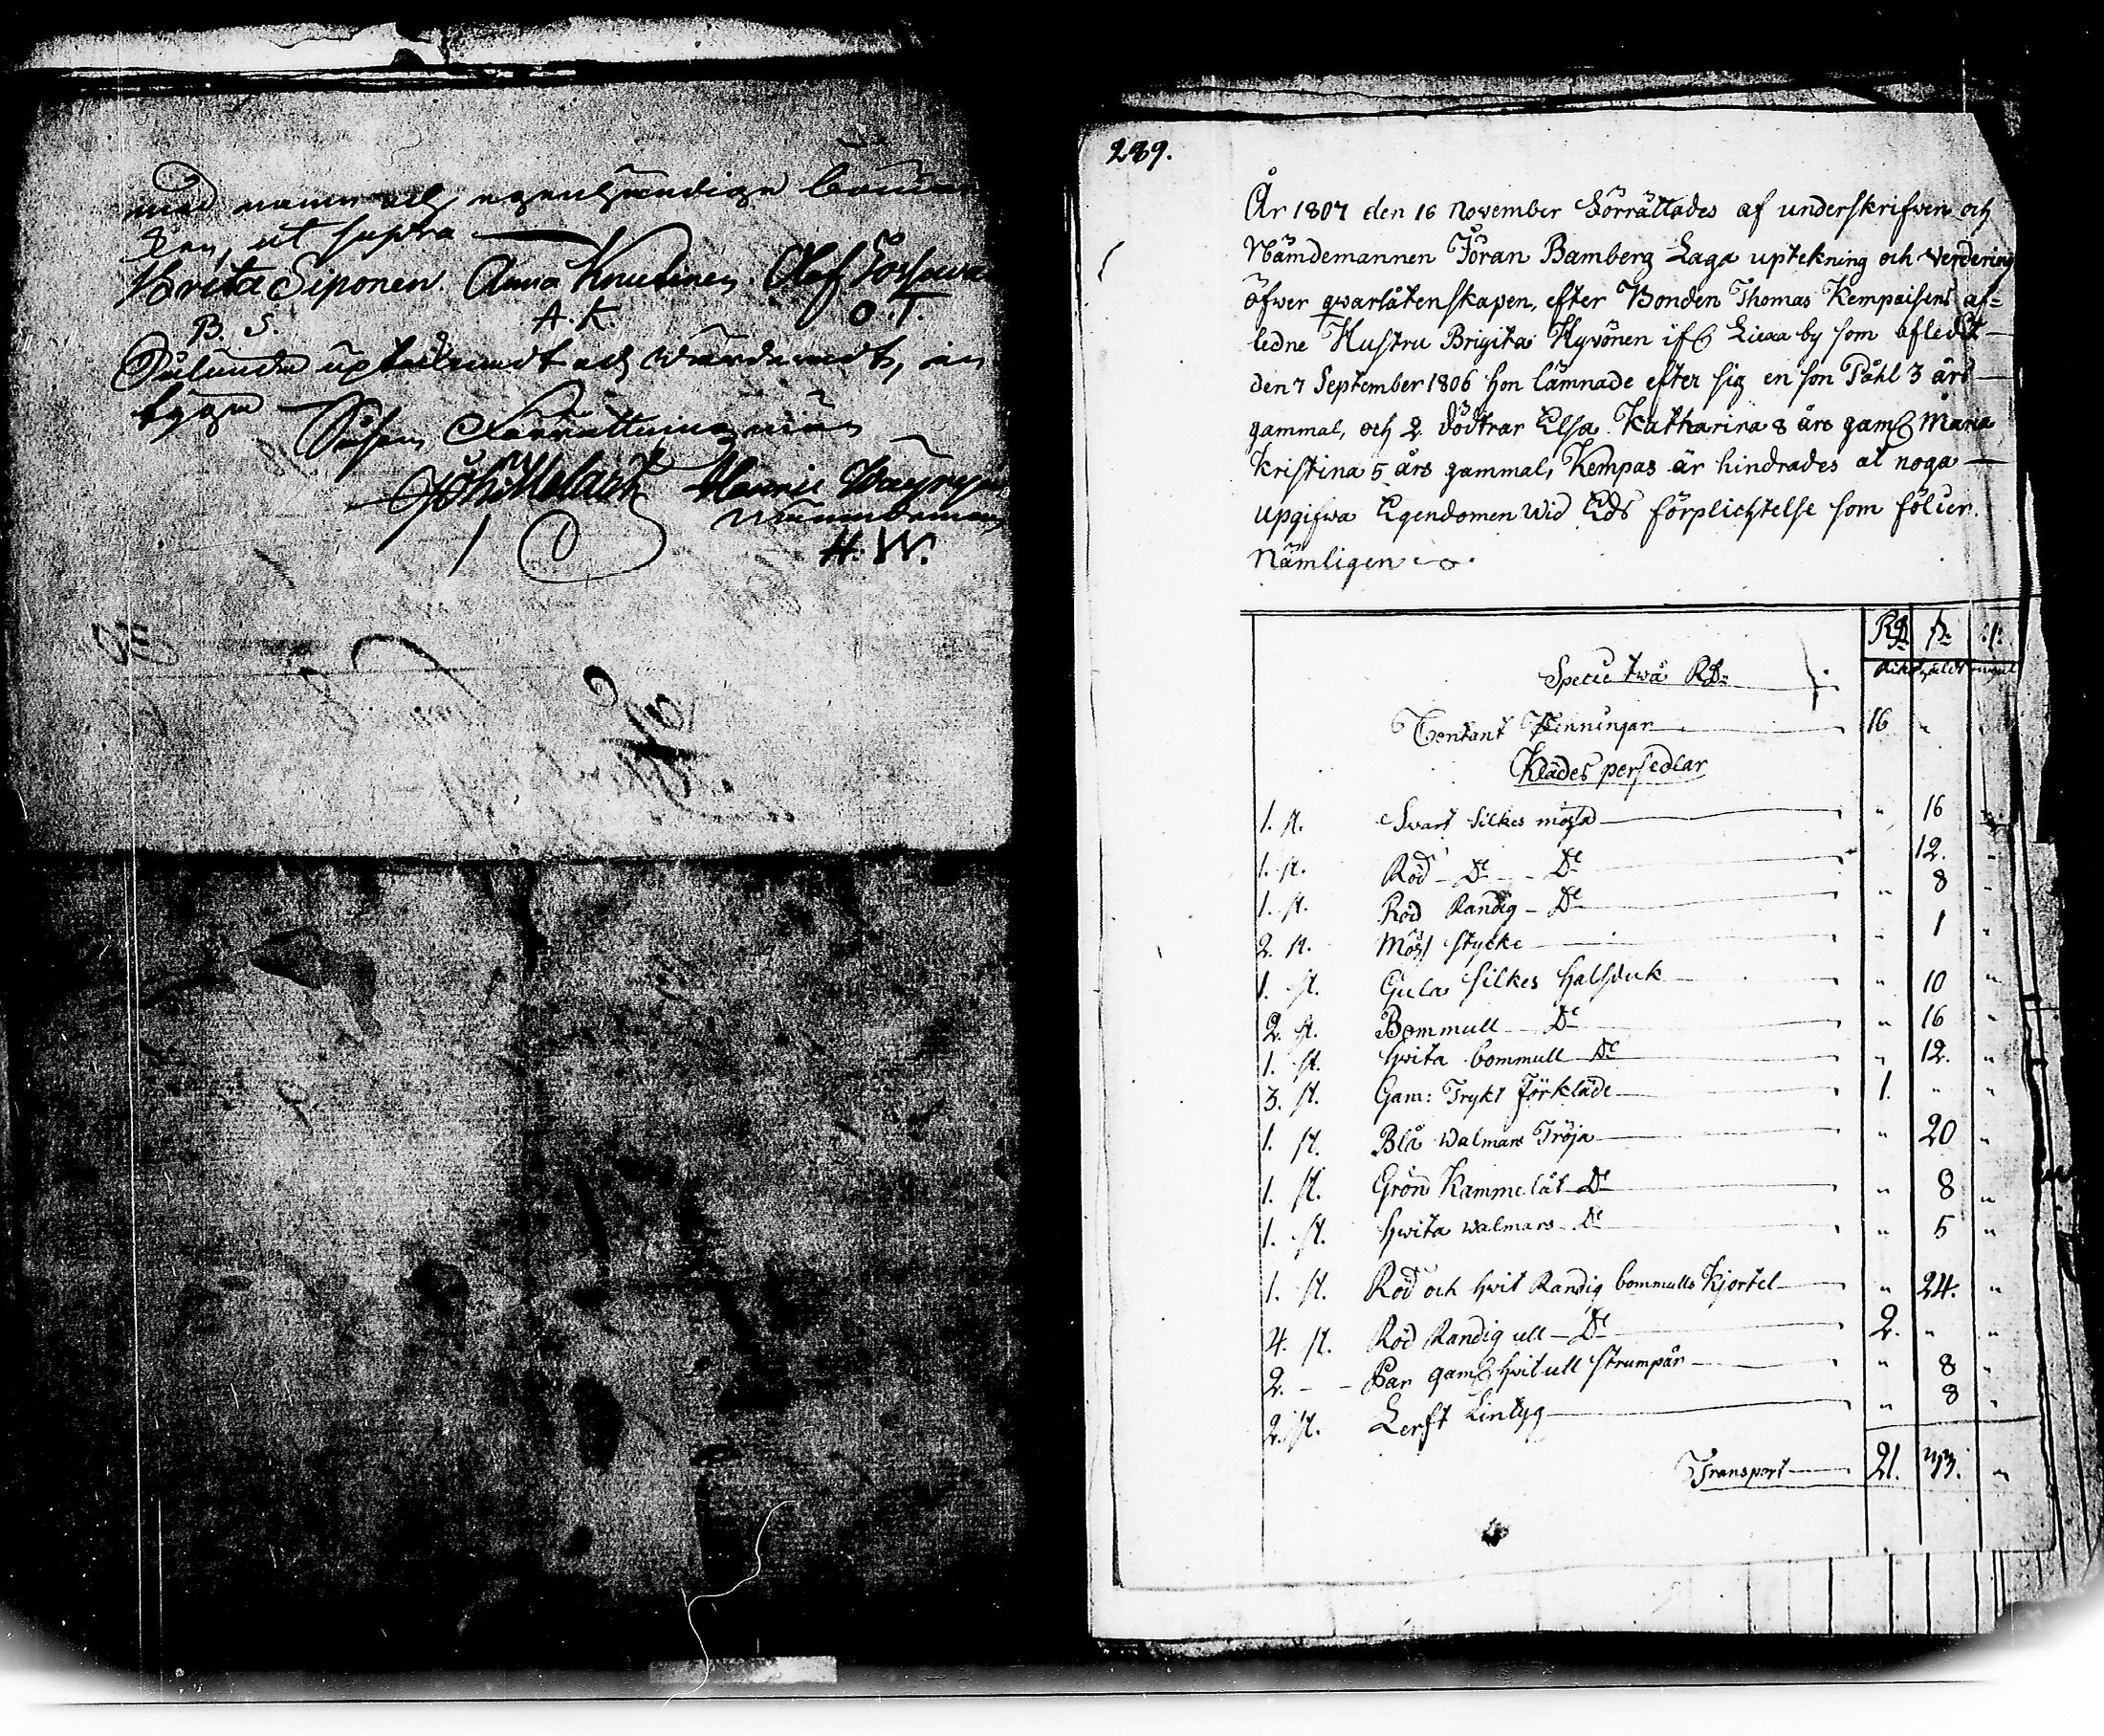 med namn och egenhändige bomär
ken, ut supra
Brita Siponen Anna Knutinen Olof
B. S. A. K. O. T.
Sålunda uptecknadt och värderadt, in
tygar
Johan Molarik Henric Väyrynen
Nämndeman
H. W.
289.
År 1807 den 16 November Förrättades af underskrifven och
Nämdemannen Jöran Bamberg Laga uptekning och Verdering
öfwer qwarlåtenskapen, efter Bonden Thomas Kempaisens af=
ledne Hustru Brigita Hyvönen if Liexa by som afledit
den 7 September 1806 hon lämnade efter sig en son Påhl 3 års
gammal, och 2 dödtrar Elsa Katharina 8 års gaml Maria
Kristina 5 års gammal, Kempas är hindrades at noga
upgifwa Egendomen wid Eds förplichtelse som följer.
Nämligen
RD s. r.
Riksgäldt mynt
Specie twå RD
Contant Penningar 16 "
Klädes persedlar
1. st. Svart Silkes mössa " 16 "
1. st. Röd Do Do 12. "
1. st. Röd Randig Do " 8 "
2. st. Möss stycke " 1 "
1. st. Gula silkes halsduk " 10 "
2. st. Bommull Do " 16 "
1. st. hvita bommull Do " 12. "
3. st. Gam: Trykt Förkläde 1. " "
1. st. Blå walmars Tröja " 20 "
1. st. Grön Kammelåt Do " 8 "
1. st. hvita walmars Do " 5 "
1. st. Röd och hvit Randig bommulls Kjortel " 24. "
4. st. Röd Randig ull Do 2. " "
2. - - Par gaml hvit ull strumpår " 8 "
2. st. Lerft Lintyg " 8 "
Transport 21. "